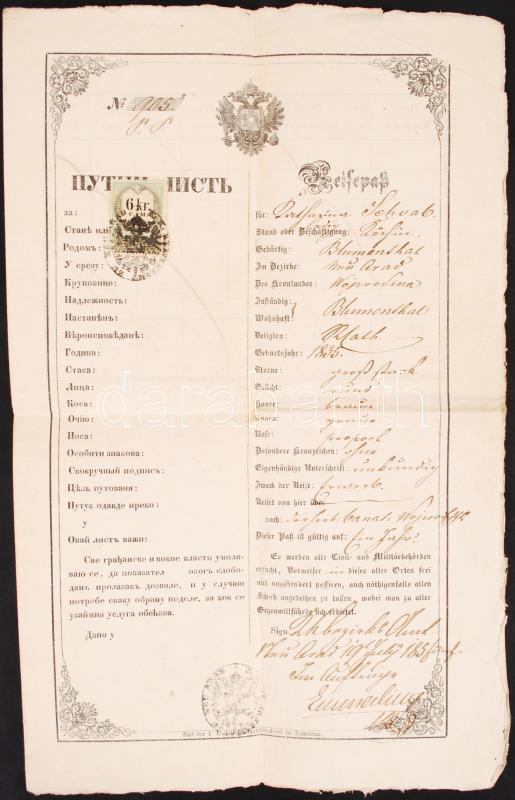 № 965.
ПУТНИ ЛИСТЪ
6 kr.
за:
Станѣ или
Родомъ:
У срезу:
Крунповине:
Надлежность:
Настанѣнъ:
Вѣроисповѣданѣ:
Година:
Стаса:
Лица:
Коса:
Очію:
Носа:
Особити знакова:
Своеручный подписъ:
Цѣль путованя:
Путує одавде преко:
у
Овай листъ важи:
Све грађанске и воєне власти умоляваю се, да показателю овогъ слободанъ пролазакъ дозволе, и у случаю потребе сваку обрану поделе, за кое се узаймна услуга обећава.
Дано у
Reisepaß
für: Katharina Schwab
Stand oder Beschäftigung: Köchin
Gebürtig: Blumenthal
Im Bezirke: Neu Arad
Des Kronlandes: Wojwodina
Zuständig:
Wohnhaft: Blumenthal
Religion: Kath.
Geburtsjahr: 1835.
Statur: groß stark
Gesicht: rund
Haare: braun
Augen: graue
Nase: proport
Besondere Kennzeichen: ohne
Eigenhändige Unterschrift: unkundig
Zweck der Reise: Erwerb.
Reiset von hier über
nach:
Dieser Paß ist gültig auf: Ein Jahr.
Es werden alle Civil- und Militärbehörden
ersucht, Vorweiser in dieses aller Orten frei
und ungehindert passiren, auch nöthigenfalls allen
Schutz angedeihen zu lassen, wobei man zu aller
Gegenwillfährde sich erbietet.
Sign. K.k. Bezirks Amt
Neu Arad 19 July 185
Im Auftrage